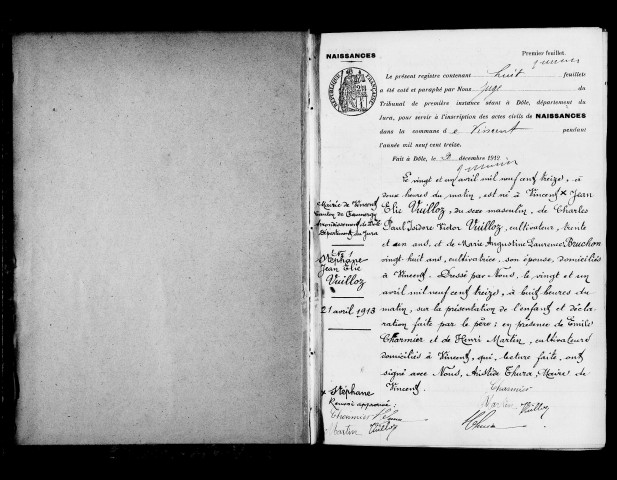 NAISSANCES
Premier feuillet.
Le présent registre contenant huit feuillets
a été coté et paraphé par Nous Juge du
Tribunal de première instance séant à Dôle, département du
Jura, pour servir à l'inscription des actes civils de NAISSANCES
dans la commune de Vincent pendant
l'année mil neuf cent treize.
Fait à Dôle, le décembre 1912
RÉPUBLIQUE FRANÇAISE
Mairie de Vincent
Canton de Chaumergy
Arrondissement de Dole
Département du Jura
N° 1
Stéphane
Jean Elie
Vuilloz
21 avril 1913
Le vingt et un avril mil neuf cent treize, à
deux heures du matin, est né à Vincent x Jean
Elie Vuilloz, du sexe masculin, de Charles
Paul Isidore Victor Vuilloz, cultivateur, trente
et un ans, et de Marie Augustine Laurence Bouchon
vingt huit ans, cultivatrice, son épouse, domiciliés
à Vincent. Dressé par Nous, le vingt et un
avril mil neuf cent treize, à huit heures du
matin, sur la présentation de l'enfant et décla
ration faite par le père ; en présence de Emile
Charmier et de Henri Martin, cultivateurs
domiciliés à Vincent, qui, lecture faite, ont
signé avec Nous, Aristide Thura, Maire de
Vincent.
x Stéphane
Renvoi approuvé :
Charmier
Martin Vuilloz
Charmier
Martin
Vuilloz
Thura